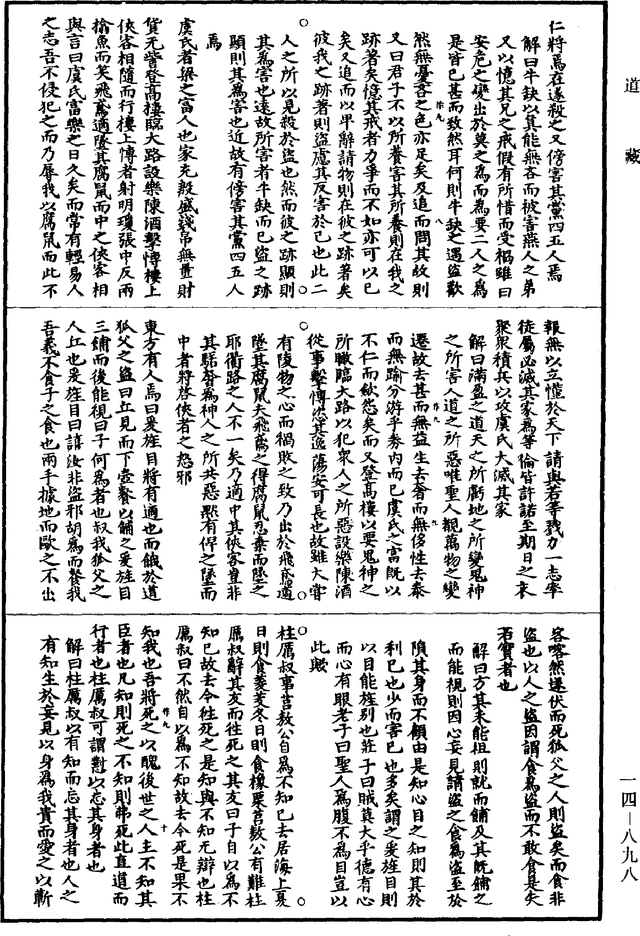 道藏
仁將焉在遂殺之又傍害其黨四五人焉
解曰牛缺以其能無吝而被害燕人之弟
又以憶其兄之戒假有所惜而受禍雖曰
安危之變出於莫之為而為要二人之為
是皆已甚而致然耳何則牛缺之遇盜歡
然無憂吝之色亦足矣及追而問其故則
又曰君子不以所養害其所養則在我之
跡著矣憶其戒者力爭而不如亦可以已
矣又追而以卑辭請物則在彼之跡著矣
彼我之跡著則盜慮其反害於已也此二
人之所以見殺於盜也然而彼之跡顯則
其為害也速故所害者牛缺而已盜之跡
顯則其為害也近故有傍害其黨四五人
焉
虞氏者梁之富人也家充殷盛錢帛無量財
貨无訾登高樓臨大路設樂陳酒擊愽樓上
俠客相隨而行樓上愽者射明瓊張中反兩
㯓魚而矣飛鳶適墜其腐鼠而中之俠客相
與言曰虞氏富樂之日久矣而常有輕易人
之志吾不侵犯之而乃辱我以腐鼠而此不
報無以立慬於天下請與若等戮力一志率
徒屬必滅其家為等倫皆許諾至期日之夜
聚衆積兵以攻虞氏大滅其家
解曰滿盈之道天之所虧地之所變鬼神
之所害人道之所惡唯聖人覩萬物之變
遷故去甚而無益生去奢而無侈性去泰
而無踰分游乎券内而已虞氏之富既以
不仁而斂怨矣而又登高樓以要鬼神之
所瞰臨大路以犯衆人之所惡設樂陳酒
從事擊愽恣其逸蕩安可長也故雖大甞
有陵物之心而禍敗之致乃出於飛鳶適
墜其腐鼠夫飛鳶之得腐鼠忽棄而墜之
耶衢路之人不一矣乃適中其俠客豈非
其驕奢為神人之所共惡默有俾之墜而
中者將啓俠者之怒邪
東方有人焉曰爰旌目將有適也而餓於道
狐父之盜曰丘見而下壺餐以餔之爰旌目
三餔而後能視曰子何為者也叔我狐父之
人丘也爰旌目曰譆汝非盜邪胡為而餐我
吾義不食子之食也兩手據地而歐之不出
客喀然遂伏而死狐父之人則盜矣而食非
盜也以人之盜因謂食為盜而不敢食是失
名實者也
解曰方其未能視則就而餔及其既餔之
而能視則因心妄見請盜之食為盜至於
隕其身而不顧由是知心目之知則其於
利已也少而害已也多矣謂之爰旌目則
以目能旌别也莊子曰賊莫大乎德有心
而心有眼老子曰聖人為腹不為目豈以
此歟
柱厲叔事莒敖公自為不知已去居海上夏
日則食菱芰冬日則食橡栗莒敖公有難柱
厲叔辭其友而往死之其友曰子自以為不
知已故去今往死之是知與不知无辯也柱
厲叔曰不然自以為不知故去今死是果不
知我也吾將死之以醜後世之人主不知其
臣者也凡知則死之不知則弗死此直道而
行者也柱厲叔可謂懟以忘其身者也
解曰柱厲叔以有知而忘其身者也人之
有知生於妄見以身為我貴而愛之以蘄
一四—八九八